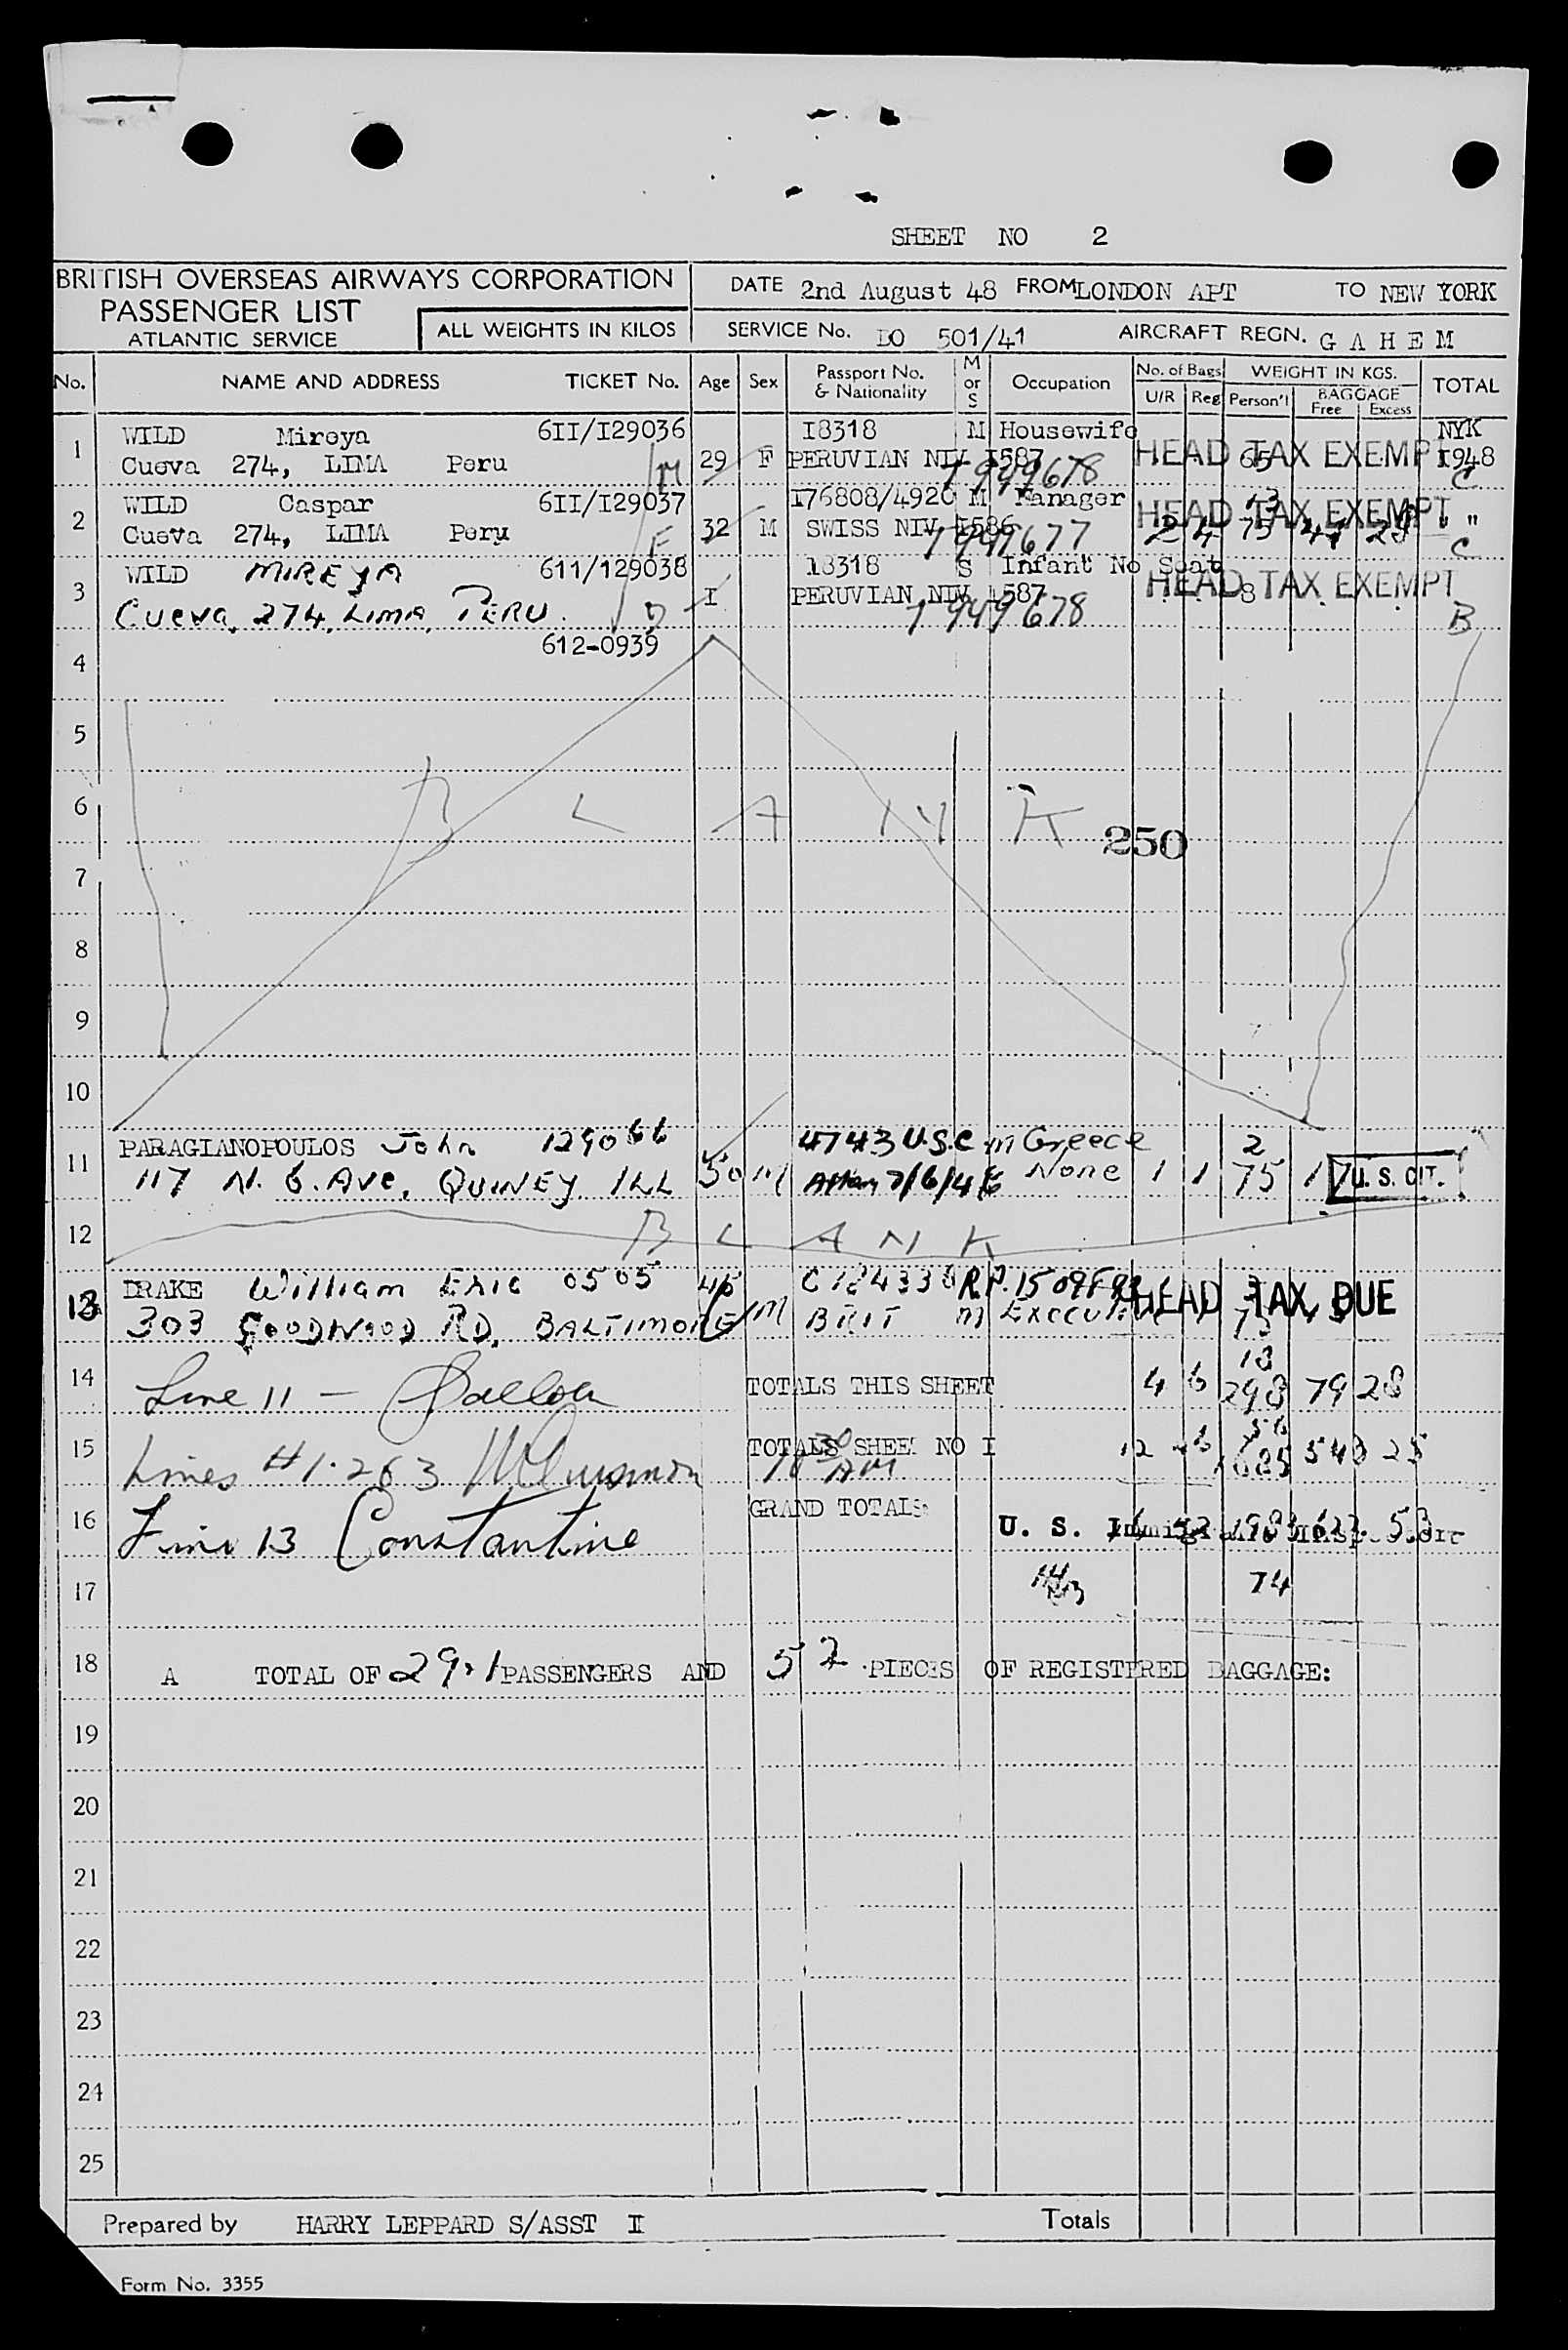 SHEET NO 2
BRITISH OVERSEAS AIRWAYS CORPORATION
PASSENGER LIST
ATLANTIC SERVICE
ALL WEIGHTS IN KILOS
DATE 2nd August 48 FROM LONDON APT TO NEW YORK
SERVICE No. BO 501/41 AIRCRAFT REGN. G A H E M
No. NAME AND ADDRESS TICKET No. Age Sex Passport No. & Nationality M or S Occupation No. of Bags U/R Reg WEIGHT IN KGS. Person'l BAGGAGE Free Excess TOTAL
1 WILD Mireya 6II/I29036 29 F I8318 M Housewife NYK
Cueva 274, LIMA Peru M PERUVIAN NIV I587 HEAD TAX EXEMPT 65 I948
7949678 C
2 WILD Caspar 6II/I29037 32 M I76808/4920 M Manager 13
Cueva 274, LIMA Peru F SWISS NIV I586 HEAD TAX EXEMPT 2 4 75 28 " "
7949677 C
3 WILD MIREYA 611/129038 I 18318 S Infant No Seat
Cueva, 274, LIMA, PERU. PERUVIAN NIV 1587 HEAD TAX EXEMPT 8
7949678 B
4 612-0939
5
6 BLANK 250
7
8
9
10
11 PARAGIANOPOULOS John 129066 50 M 4743 U.S.C m Greece 2
117 N. 6. Ave, QUINEY ILL None 1 1 75 17 U. S. CIT.
12 BLANK
13 DRAKE William Eric 0505 46 M R.P.
303 GOODWOOD RD, BALTIMORE BRIT m HEAD TAX DUE
14 Line 11 — TOTALS THIS SHEET 4 6 13 298 79 28
15 Lines #1.2&3 TOTALS SHEET NO I 10 30 AM 12
16 Line 13 Constantine GRAND TOTALS U. S. Immigrant Inspector
17 74
18 A TOTAL OF 29+1 PASSENGERS AND 52 PIECES OF REGISTERED BAGGAGE:
19
20
21
22
23
24
25
Prepared by HARRY LEPPARD S/ASST II Totals
Form No. 3355